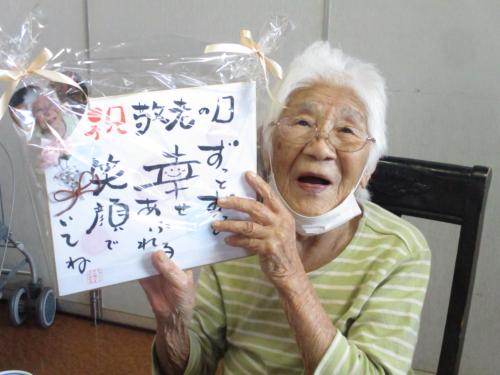 祝敬老の日
ずっとずっと
幸せあふれる
笑顔で
いてね